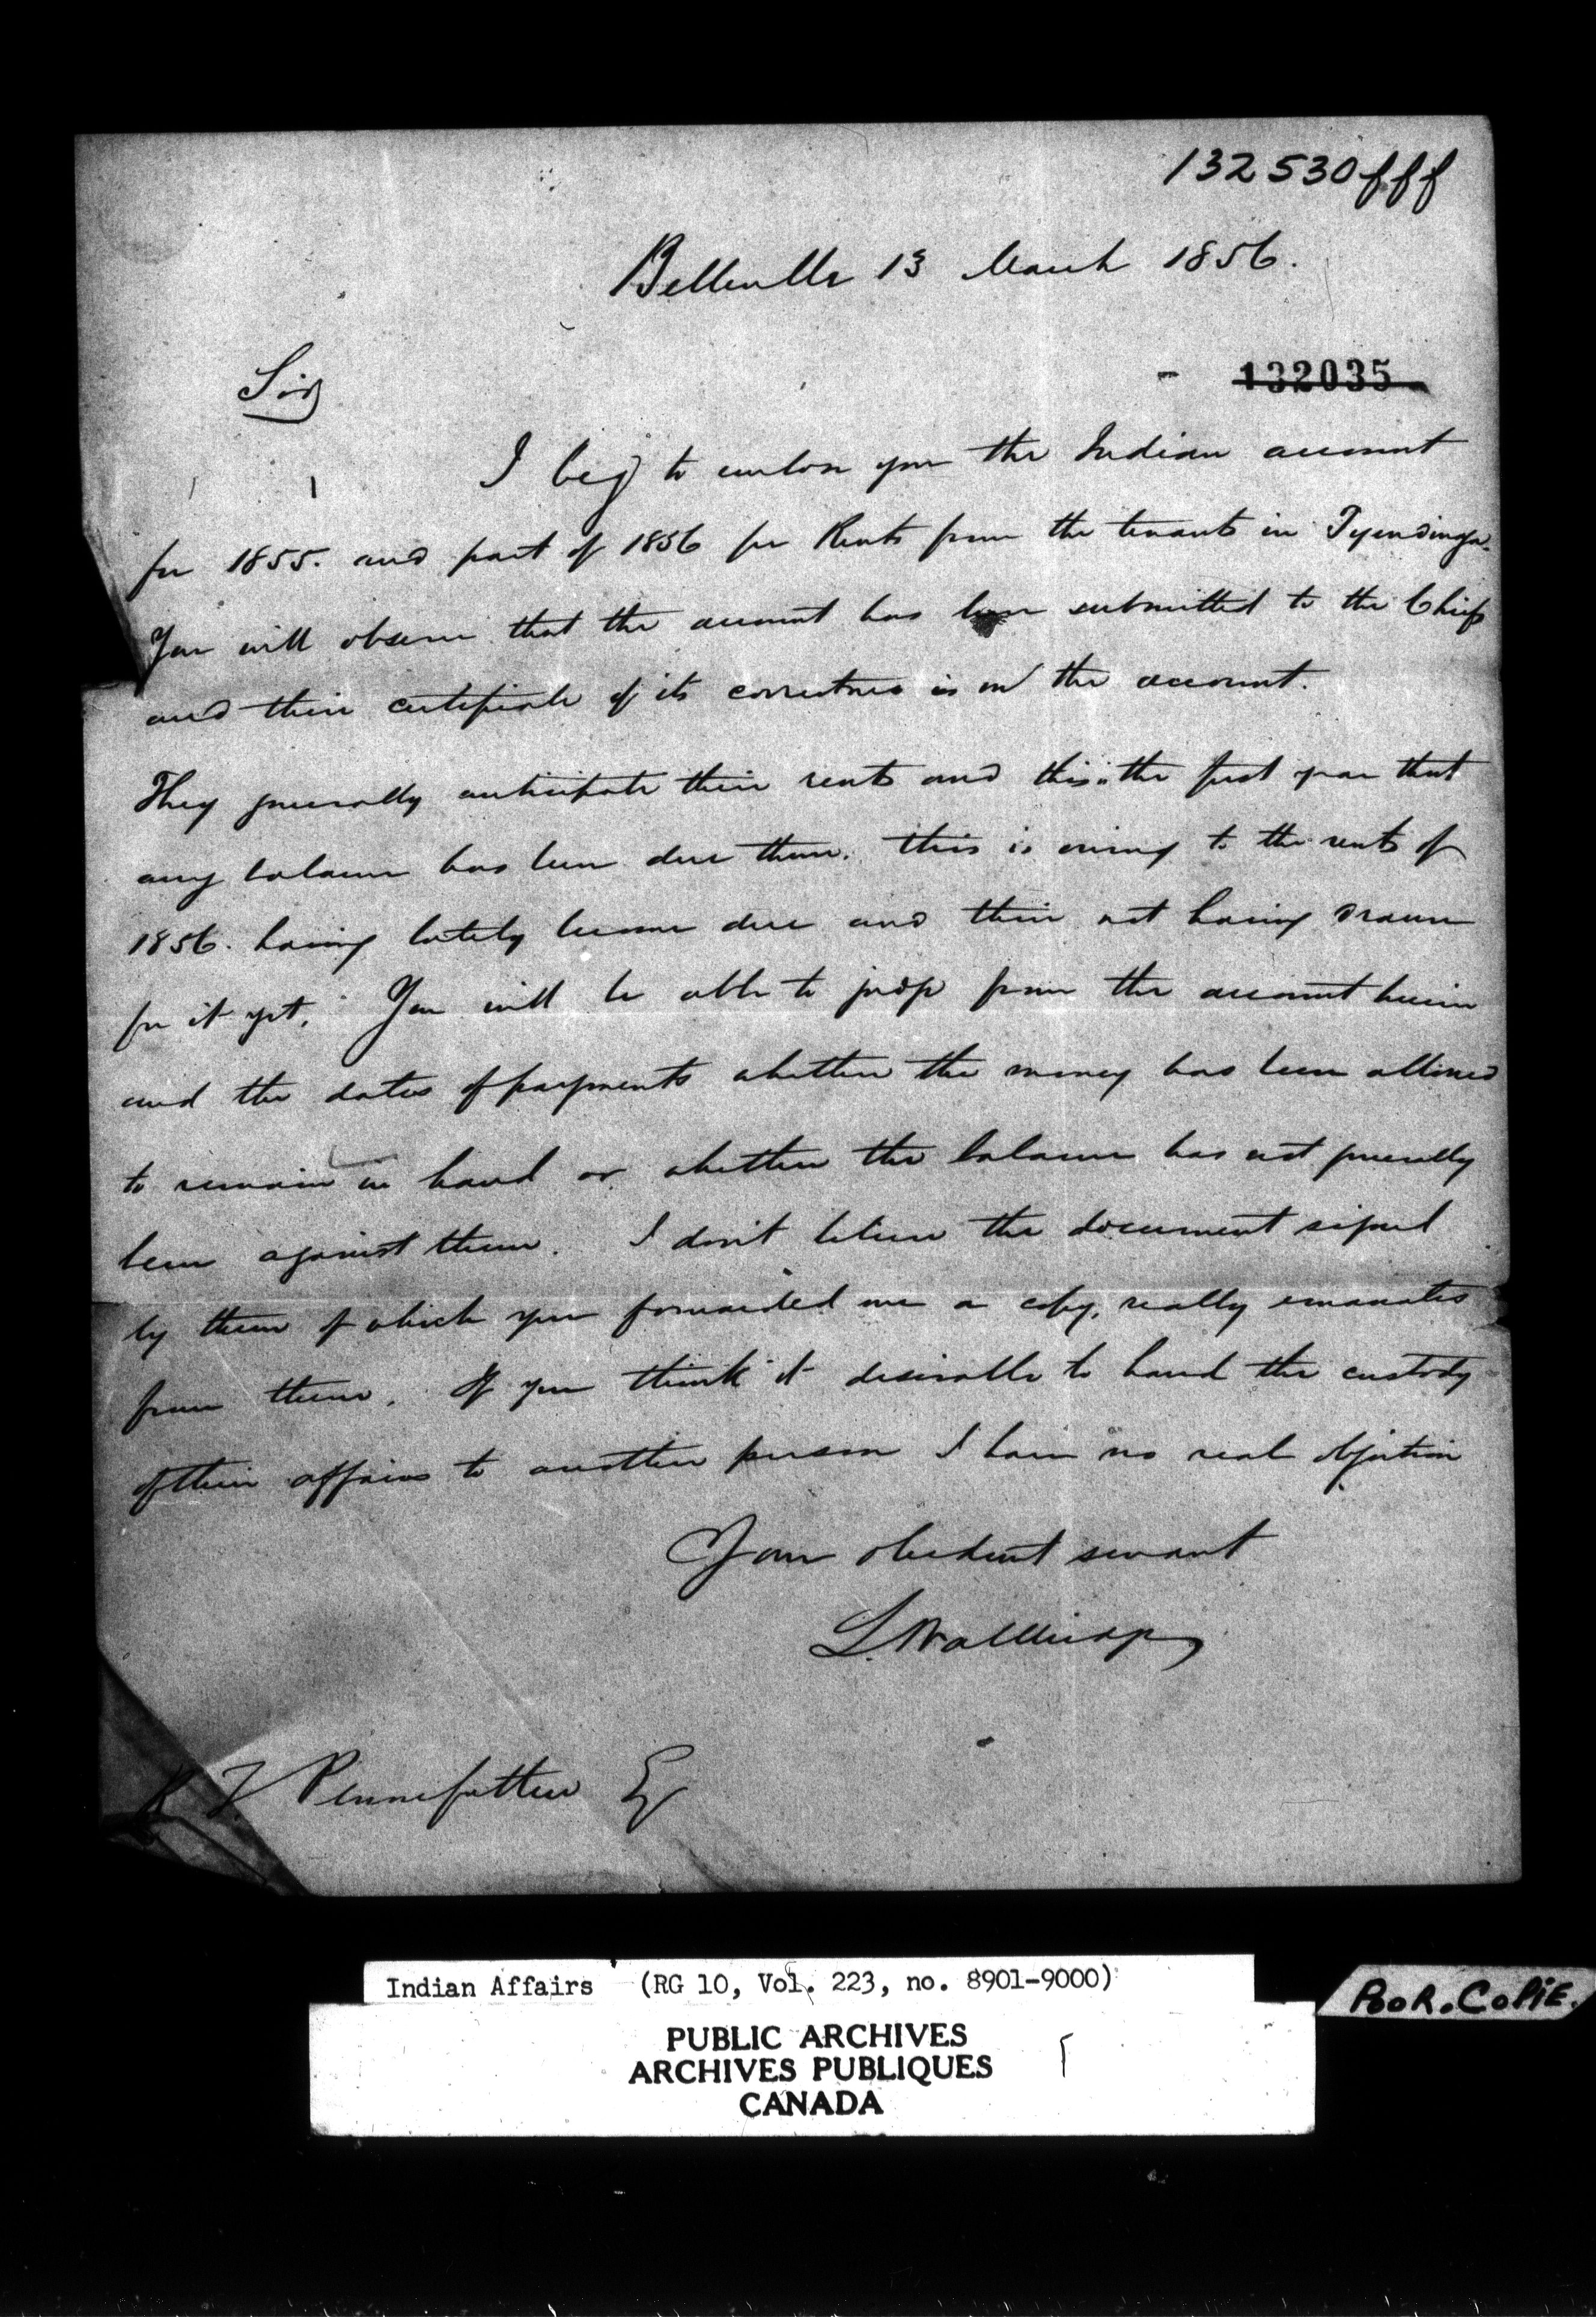 132530fff
Belleville 13 March 1856.
132035
Sir
I beg to enclose you the Indian account
for 1855. and part of 1856 for Rents from the tenants in Tyendinaga.
You will observe that the account has been submitted to the Chiefs
and their certificate of its correctness is on the account.
They generally anticipate their rents and this is the first year that
any balance has been due them. this is owing to the rents of
1856. having lately become due and their not having drawn
for it yet. You will be able to judge from the account herein
and the dates of payments whether the money has been allowed
to remain in hand or whether the balance has not generally
been against them. I don't believe the document signed
by them of which you forwarded me a copy, really emanates
from them. If you think it desirable to hand the custody
of their affairs to another person I have no real objection
Your obedient servant
L. Wallbridge
R T. Pennefather Esq
Indian Affairs (RG 10, Vol. 223, no. 8901-9000)
PUBLIC ARCHIVES
ARCHIVES PUBLIQUES
CANADA
PooR. CoPiE.